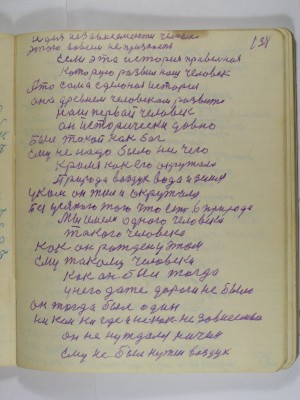 и для независимости человек
этого совсем не признает
134
Если эта история правильная
которую развил наш человек
Это сама сделоная история
она древнем человеком развита
наш первый человек
он исторически давно
Был такой как Бог
ему не надо было ни чего
кромя как его окружала
Природа воздух вода и земля
он жил и окружала
Без всякого того что есть в природе
Мы имеем одного человека
такого человека
как он рожден у этом
ему такому человеку
как он был тогда
у него даже дороги не было
он тогда был один
ни кем ни где и не как не зависемый
он не нуждался ничем
ему не был нужен воздух